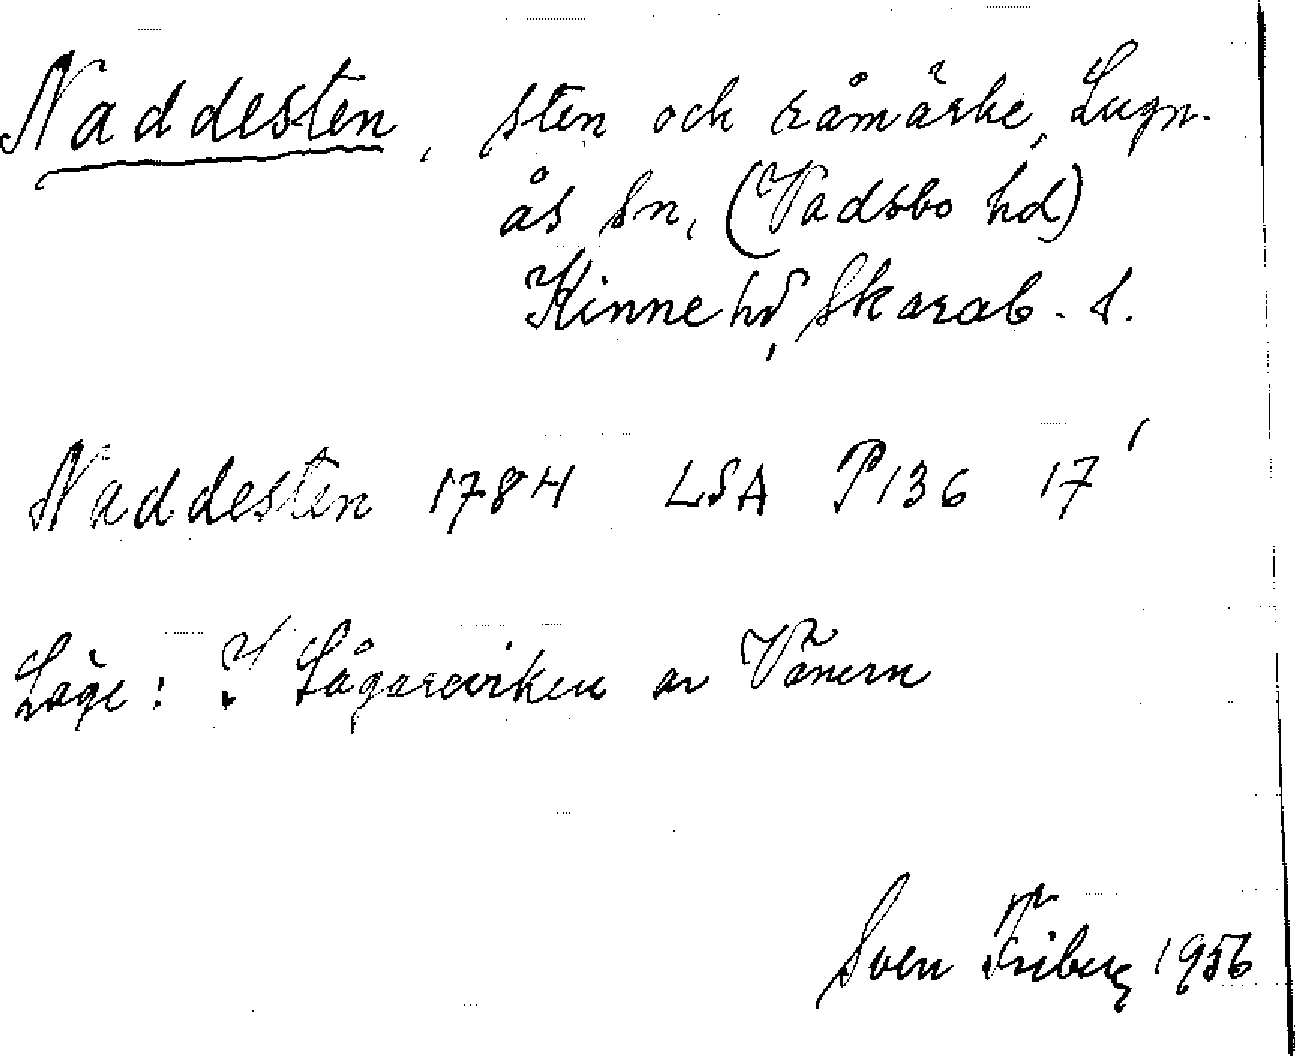 Naddesten, sten och råmärke, Lugn-
ås sn, (Vadsbo hd)
Kinne hd, Skarab. l.
Naddesten 1784 LSA P136 17'
Läge: I Lågareviken av Vänern
Sven Friberg 1956